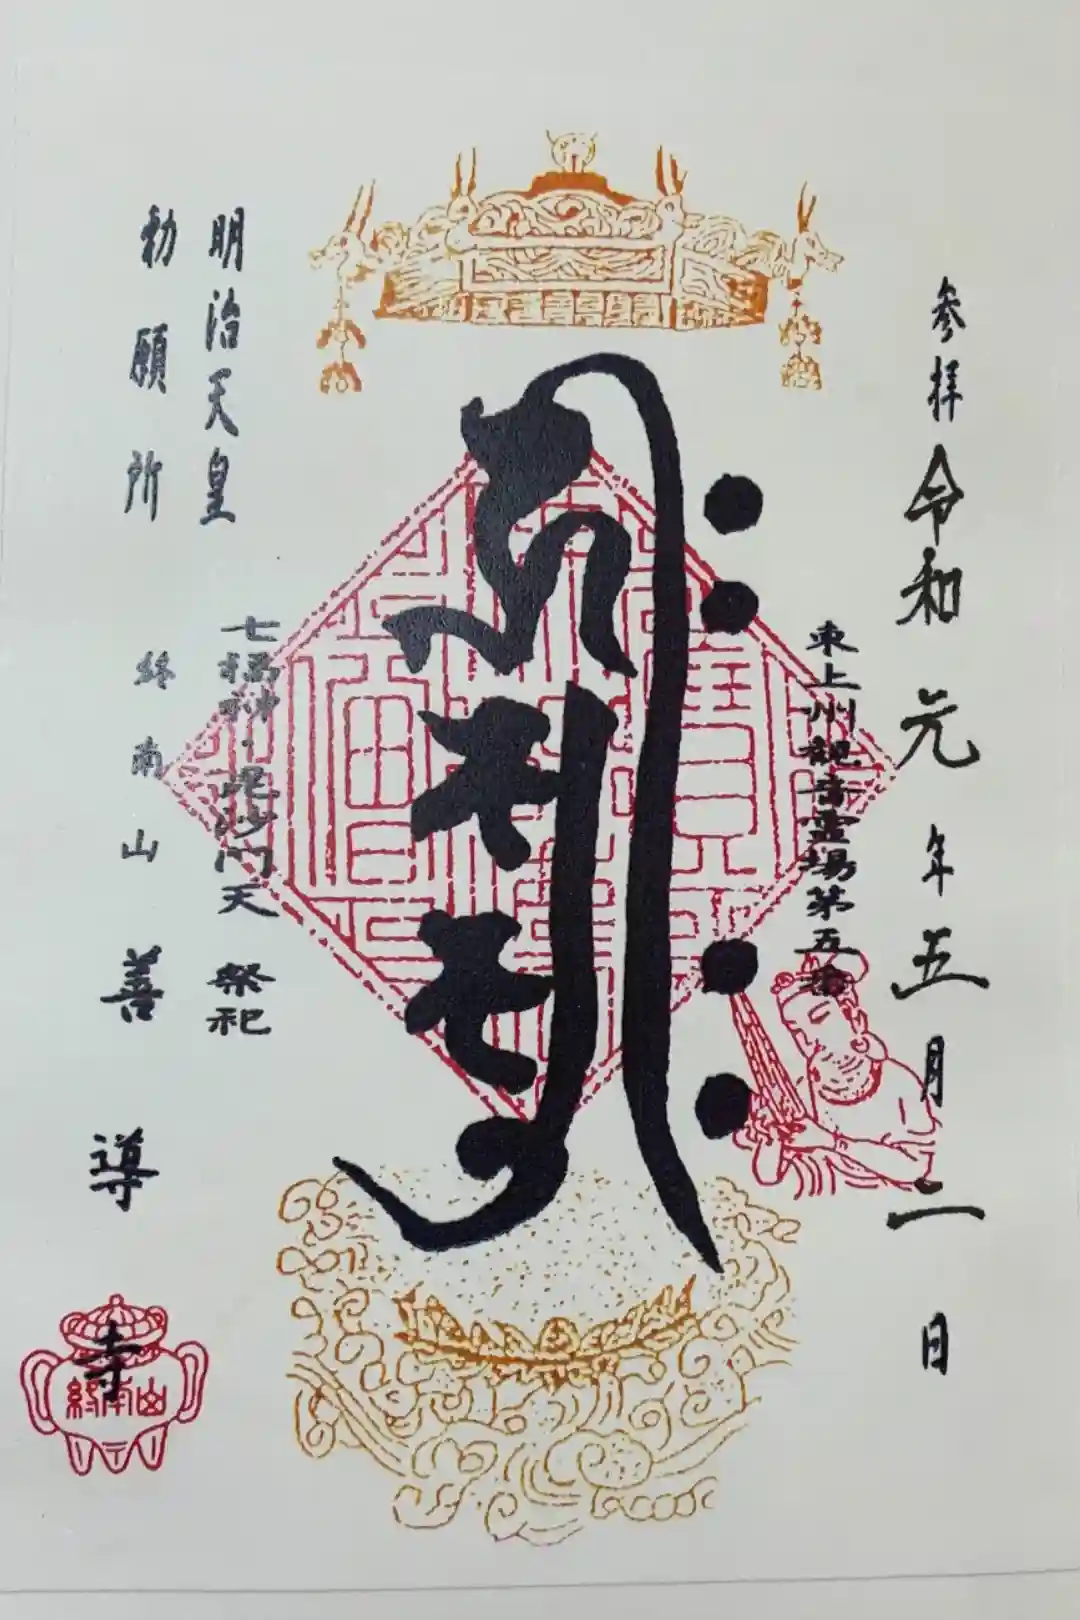 参拝 令和元年五月二日
東上州観音霊場第五番
明治天皇
勅願所
七福神・毘沙門天 祭祀
終南山 善導寺
終南山